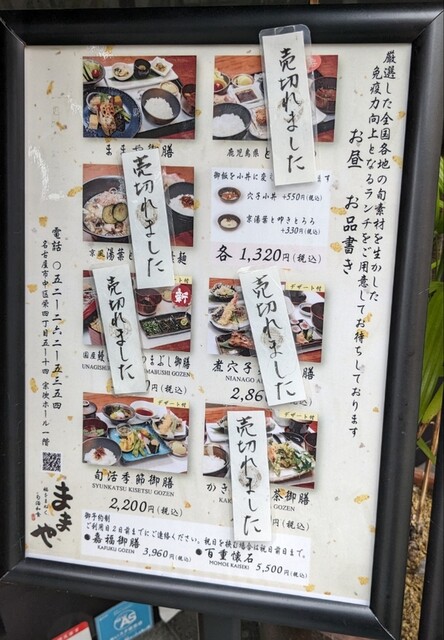 厳選した全国各地の旬素材を生かした
免疫力向上となるランチをご用意してお待ちしております
お昼 お品書き
売切れました
鹿児島県
御膳
各 1,320円(税込)
穴子小丼 +550円(税込)
京湯葉と叩きとろろ
+330円(税込)
売切れました
京風湯葉と
麺
売切れました
デザート付
煮穴子
NIANAGO
2,86
売切れました
新
国産鰻
まぶし御膳
UNAGISHI
MABUSHI GOZEN
0円(税込)
売切れました
デザート付
かき
茶御膳
GOZEN
円(税込)
デザート付
旬活季節御膳
SYUNKATSU KISETSU GOZEN
2,200円(税込)
御予約制
ご利用日2日前までにご連絡ください。祝日を挟む場合は祝日前日まで。
●嘉福御膳
KAFUKU GOZEN
3,960円(税込)
●百重懐石
MOMOE KAISEKI
5,500円(税込)
電話 〇五二-二六二-五三五四
名古屋市中区栄四丁目五-十四 宗次ホール一階
旬活和食
ままや